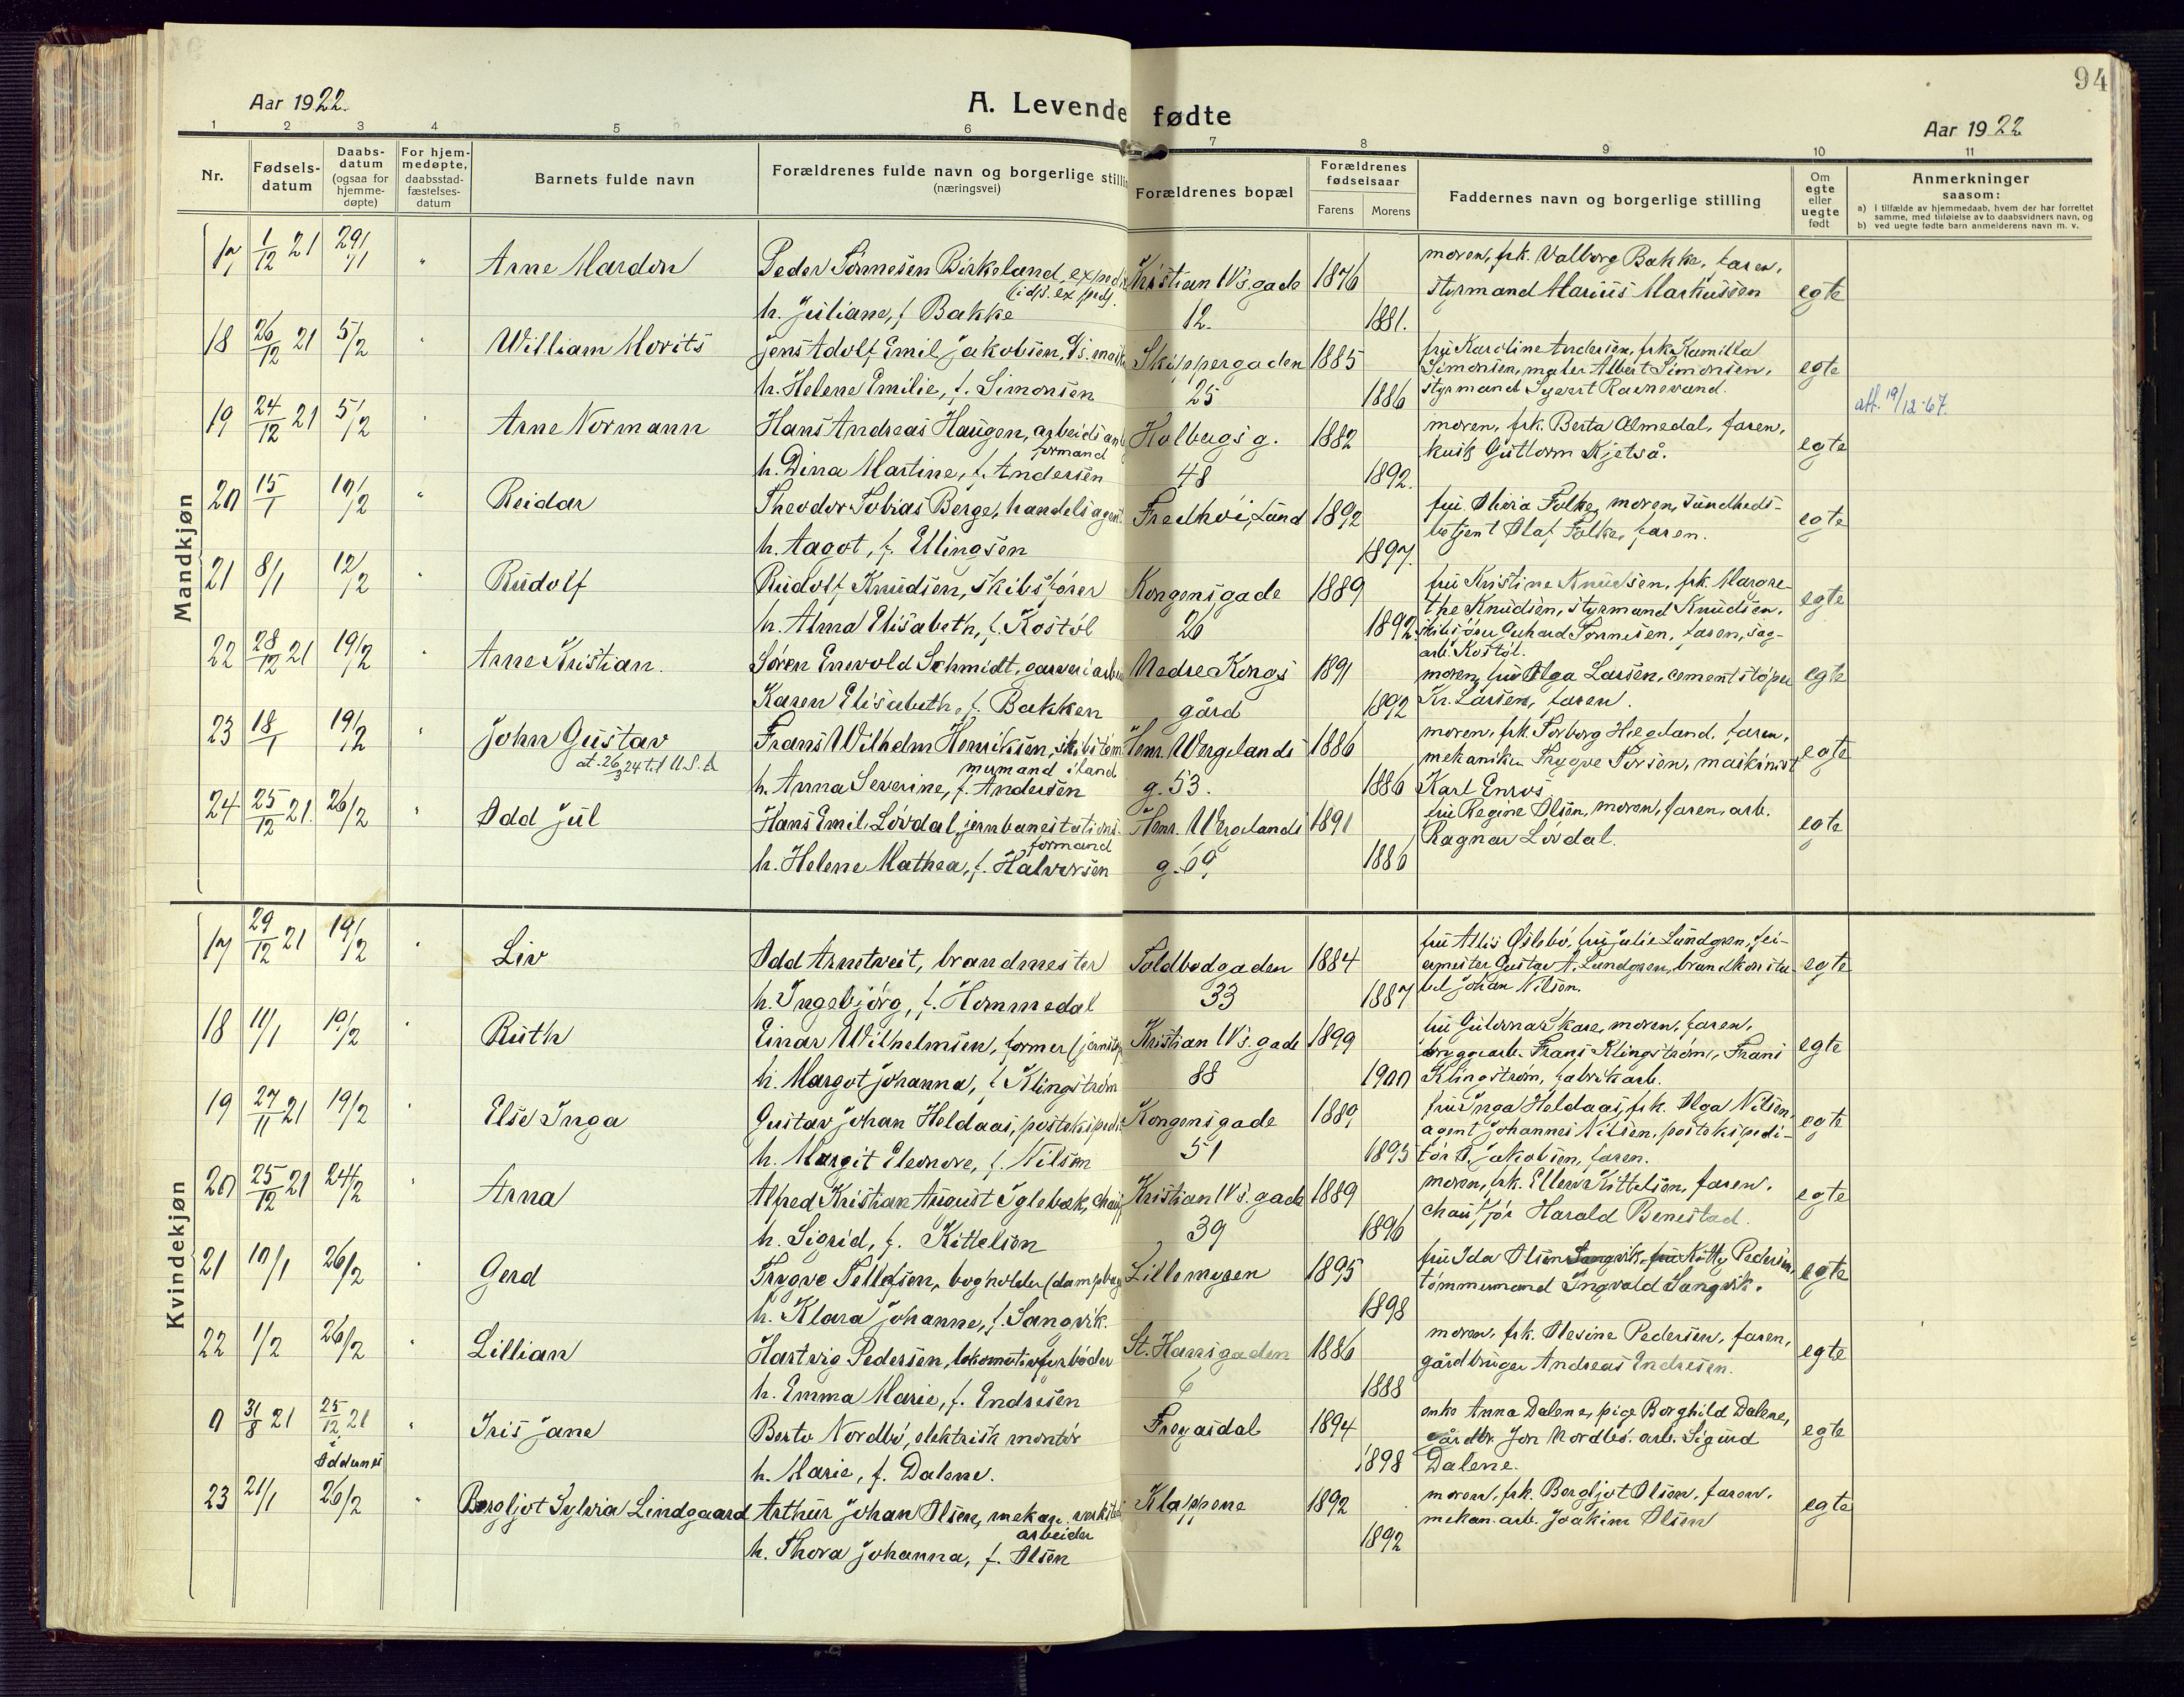 94
Aar 1922.
A. Levende fødte
Aar 1922
1 2 3 4 5 6 7 8 9 10 11
Nr.
Fødsels-
datum
Daabs-
datum
(ogsaa for
hjemme-
døpte)
For hjem-
medøpte,
daabsstad-
fæstelses-
datum
Barnets fulde navn
Forældrenes fulde navn og borgerlige stillin
(næringsvei)
Forældrenes bopæl
Forældrenes
fødselsaar
Farens Morens
Faddernes navn og borgerlige stilling
Om
egte
eller
uegte
født
Anmerkninger
saasom:
a) i tilfælde av hjemmedaab, hvem der har forrettet
samme, med tilføielse av to daabsvidners navn, og
b) ved uegte fødte barn anmelderens navn m. v.
Mandkjøn
17 1/12 21 29/1 " Arne Mardon Peder Tønnesen Birkeland, Kristian IV's. gade 1876 moren, frk. Valborg Bakke, faren, egte
styrmand Marius Markussen
h. Juliane, f. Bakke 12. 1881.
18 26/12 21 5/2 " William Morits Jens Adolf Emil Jakobsen, Skippergaden 1885 fru Karoline Andersen, frk. Kamilla egte
Simonsen, maler Albert Simonsen,
h. Helene Emilie, f. Simonsen 25 1886 styrmand Syvert Ravnevand.
att. 19/12-67.
19 24/12 21 5/2 " Arne Normann Hans Andreas Haugen, arbeids Holbergs g. 1882 moren, frk. Berta Ålmedal, faren, egte
formand kusk Guttorm Kjetså.
h. Dina Martine, f. Andersen 48 1892.
20 15/1 10/2 " Reidar Theodor Tobias Berge, handelsagent Fredhøi, Lund 1892 fru Olivia Falke, moren, sundheds- egte
betjent Olaf Falke, faren.
h. Aagot, f. Ellingsen 1897.
21 8/1 12/2 " Rudolf Rudolf Knudsen, skibsfører Kongensgade 1889 fru Kristine Knudsen, frk. Margre- egte
the Knudsen, styrmand Knudsen,
h. Alma Elisabeth, f. Kostøl 26 1892. skibsfører Gerhard Tønnesen, faren, sag-
arb. Kostøl.
22 28/12 21 19/2 " Arne Kristian. Søren Enevold Schmidt, garveriarb Nedre Kongs 1891 moren, fru Olga Larsen, cementstøper egte
Karen Elisabeth, f. Bakken gård 1892 Kr. Larsen, faren.
23 18/1 19/2 " John Gustav Frans Wilhelm Henriksen, skibstøm Henr. Wergelands 1886 moren, frk. Torborg Hægeland, faren, egte
at. 26/3 24 til U.S.A mermand iland mekaniker Trygve Torsen, maskinist
h. Anna Severine, f. Andersen g. 53. 1886 Karl Enros
24 25/12 21. 26/2 " Odd Jul Hans Emil Løvdal, jernbanestations- Henr. Wergelands 1891 fru Regine Olsen, moren, faren, arb. egte
formand Ragnar Løvdal.
h. Helene Mathea, f. Halvorsen g. 69. 1886
Kvindekjøn
17 29/12 21 19/2 " Liv Odd Arnetveit, brandmester Toldbodgaden 1884 fru Allis Øslebø, fru Julie Lundgren, fei- egte
ermester Gustav A. Lundgren, brandkonsta-
h. Ingebjørg, f. Hommedal 33 1887 bel Johan Nilsen.
18 11/1 19/2 " Ruth Einar Wilhelmsen, former (jernstøp Kristian IV's. gade 1899 fru Gulorna Skare, moren, faren, egte
bryggearb. Frans Klingstrøm, Frans
h. Margot Johanna, f. Klingstrøm 88 1900 Klingstrøm, fabrikarb.
19 27/11 21 19/2 " Else Inga Gustav Johan Heldaas, postekspedi Kongensgade 1889 fru Inga Heldaas, frk. Olga Nilsen, egte
agent Johannes Nilsen, postekspedi-
h. Margit Eleonore, f. Nilsen 51 1893 tør A. Jakobsen, faren.
20 25/12 21 24/2 " Anna Alfred Kristian August Iglebæk, chauf Kristian IV's. gade 1889 moren, frk. Ellen Kittelsen, faren, egte
chauffør Harald Benestad.
h. Sigrid, f. Kittelsen 39 1896
21 10/1 26/2 " Gerd Trygve Tellefsen, bogholder (dampbag Lillemyren 1895 fru Ida Olsen Kitty Pedersen, egte
tømmermand Ingvald Sangvik.
h. Klara Johanne, f. Sangvik. 1898
22 1/2 26/2 " Lillian Hartvig Pedersen, lokomotivfyrbøder St. Hansgaden 1886 moren, frk. Olevine Pedersen, faren, egte
gårdbruger Andreas Endresen.
h. Emma Marie, f. Endresen 6 1888
0 31/8 21 25/12 21 " Iris Jane Berto Nordbø, elektrisk montør Frøyasdal 1894 enke Anna Dalene, pige Borghild Dalene, egte
Oddernes gårdbr. Jon Nordbø, arb. Sigurd
h. Marie, f. Dalene. 1898 Dalene.
23 21/1 26/2 " Bergljot Sylvia Lindgaard Arthur Johan Olsen, mekan. verksteds Klappene 1892 moren, frk. Bergljot Olsen, faren, egte
arbeider mekan. arb. Joakim Olsen
h. Thora Johanna, f. Olsen 1892